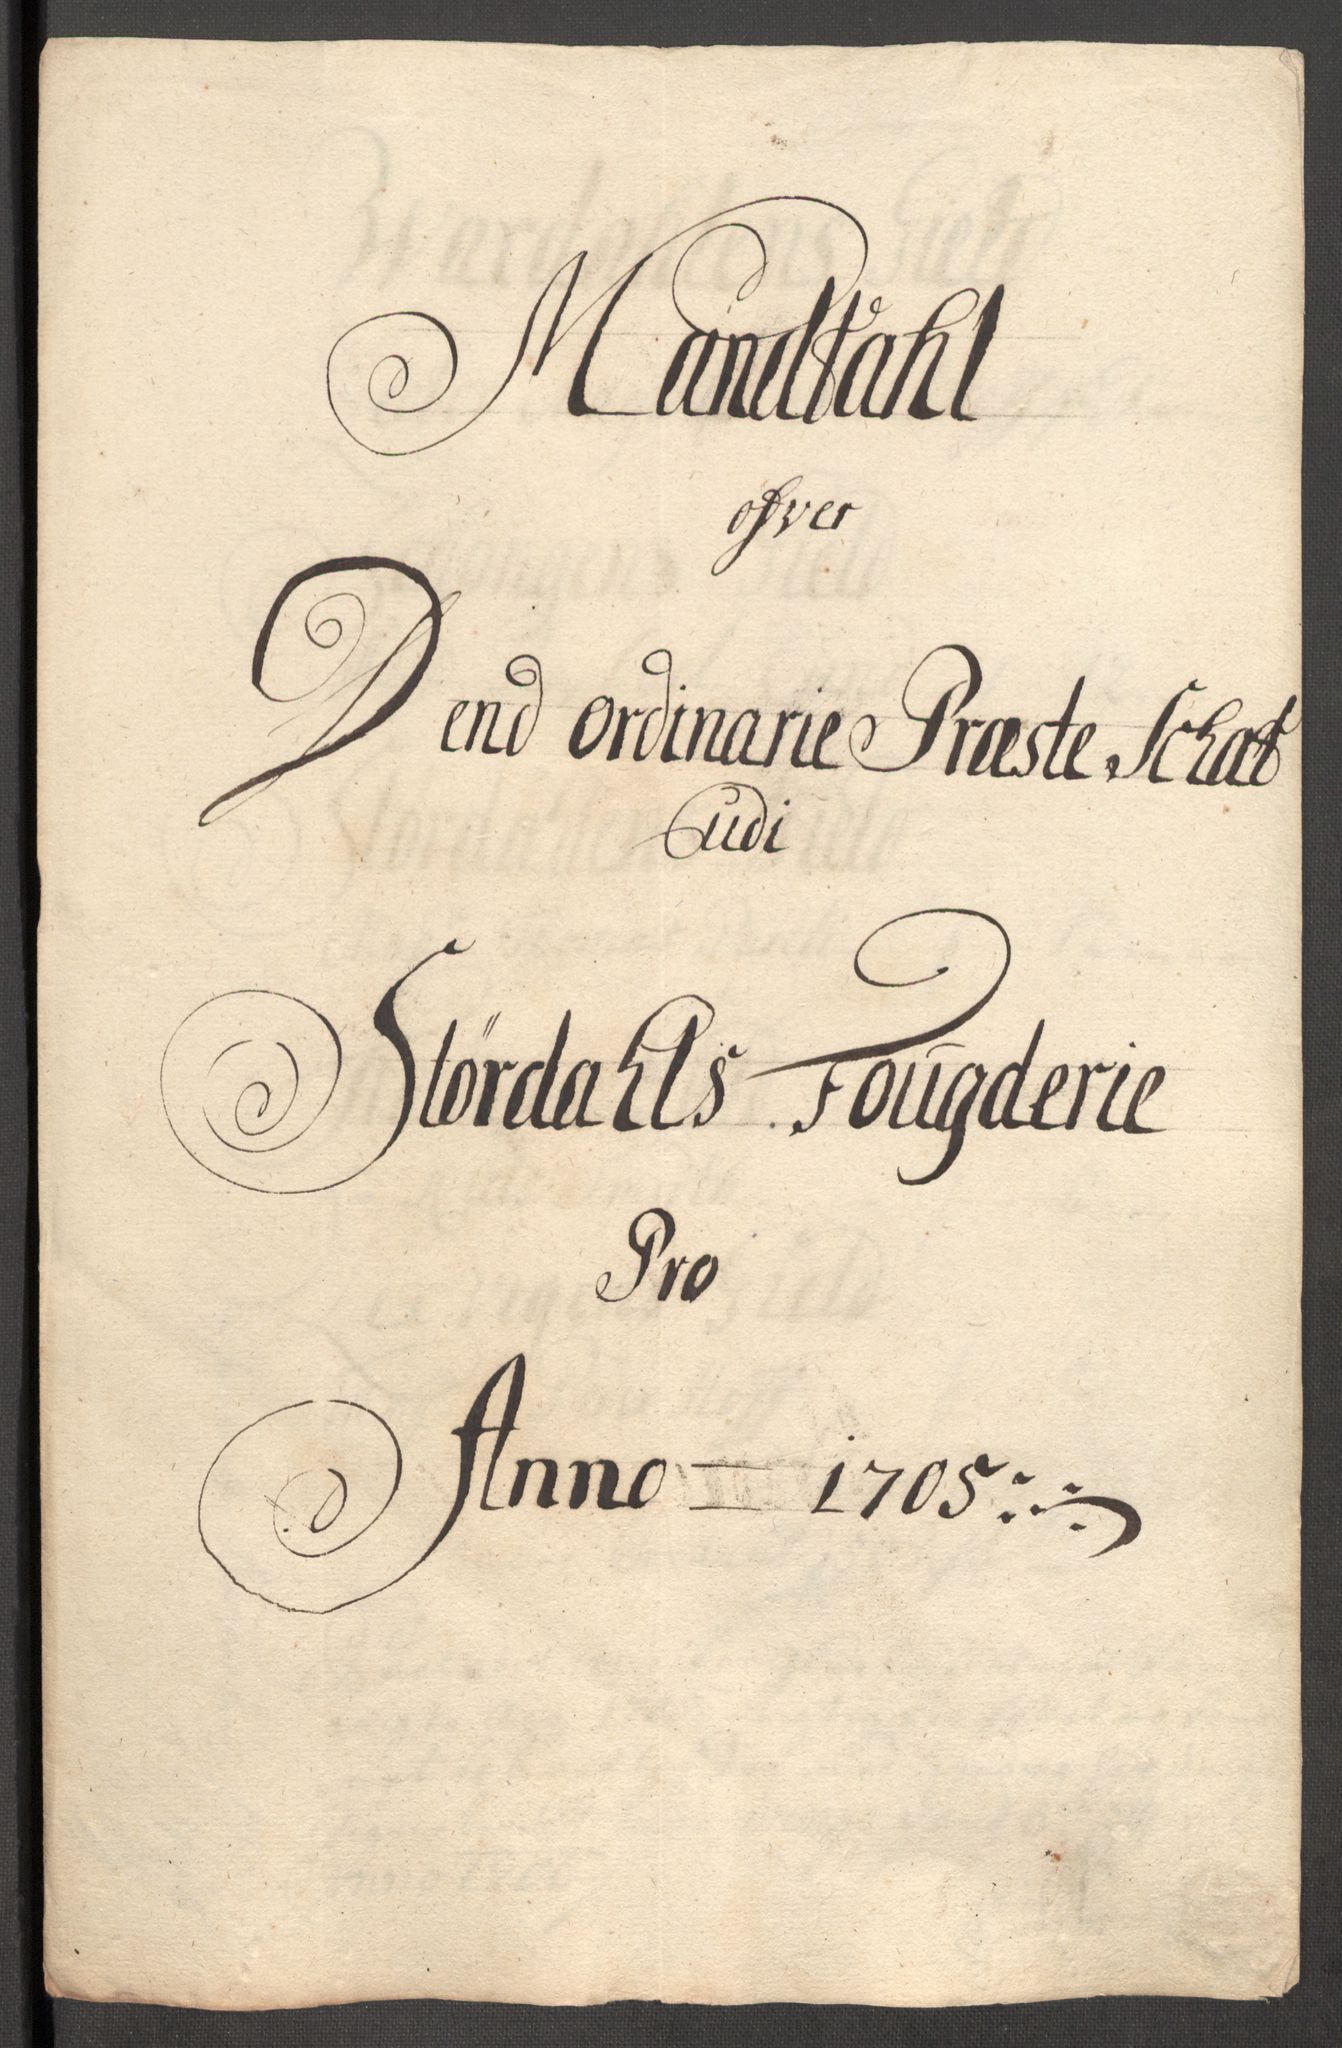 Mandtahl
ofver
Dend ordinarie Præste Schat
udi
Stördahls Fougderie
Pro
Anno 1705